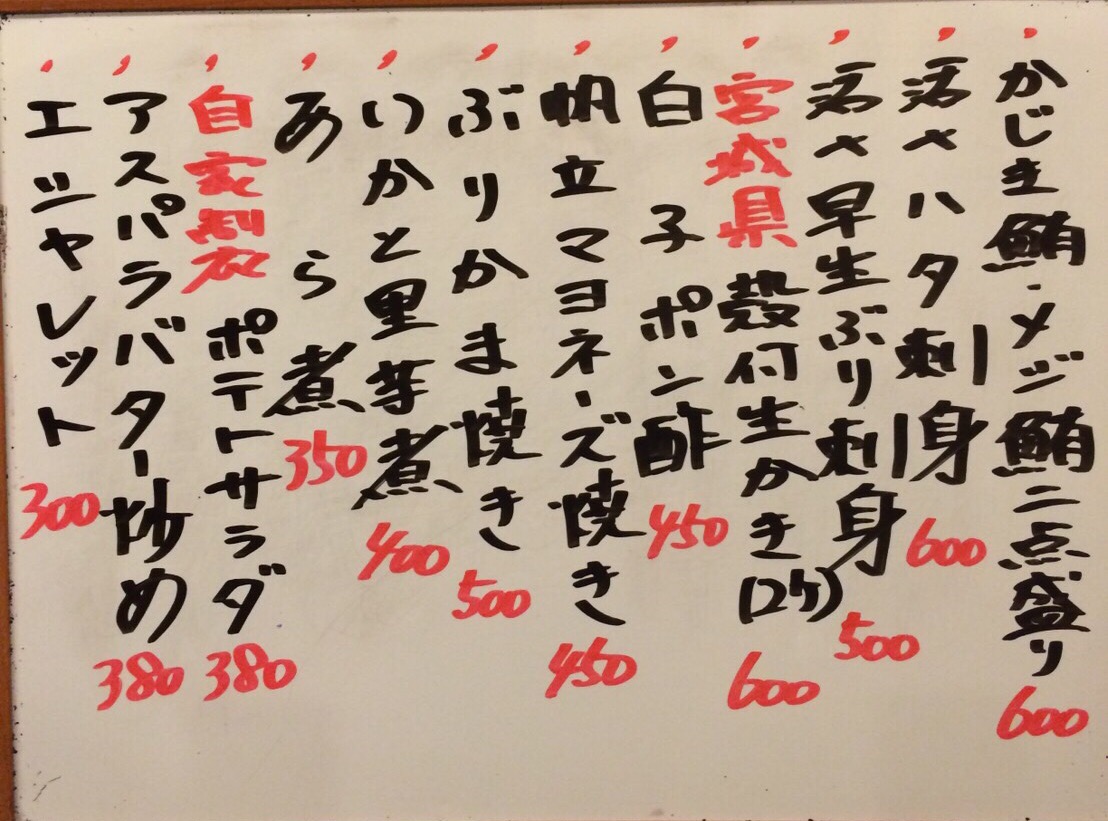 かじき鮪・メジ鮪二点盛り 600
活〆ハタ刺身 600
活〆早生ぶり刺身 500
宮城県 殻付生かき(2ケ) 600
白子ポン酢 450
帆立マヨネーズ焼き 450
ぶりかま焼き 500
いかと里芋煮 400
あら煮 350
自家製ポテトサラダ 380
アスパラバター炒め 380
エシャレット 300